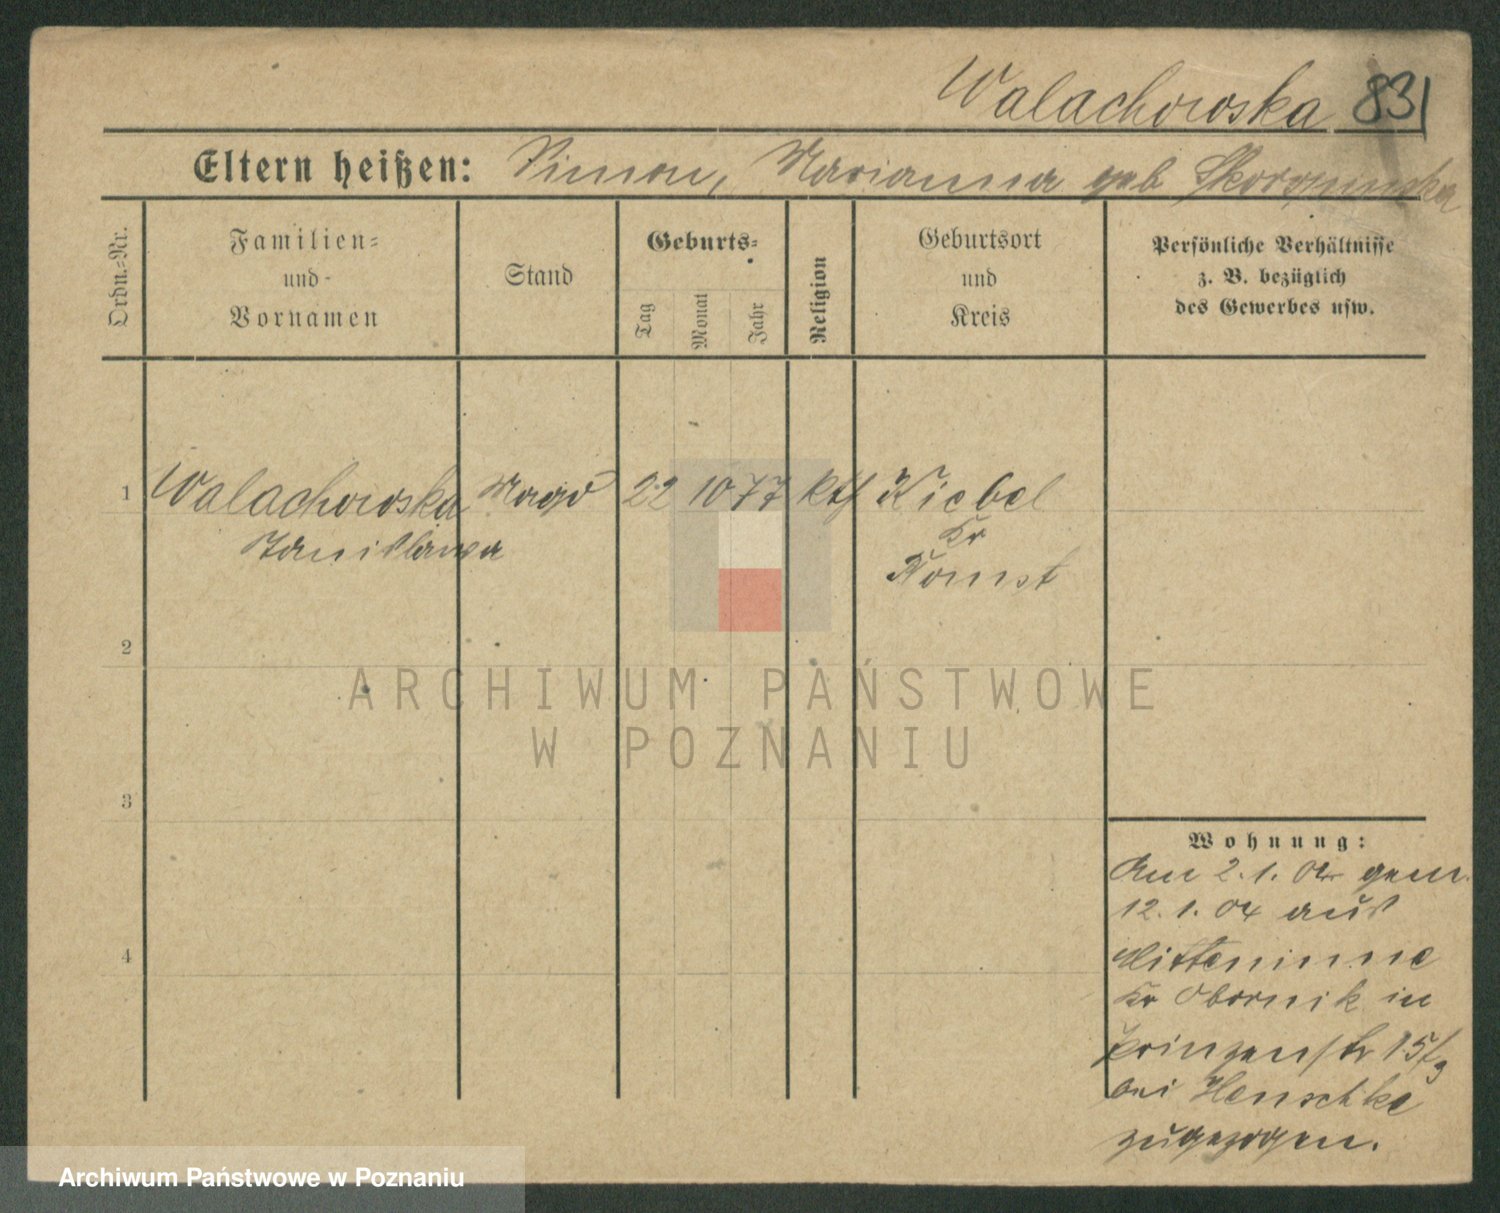 Walachowska 831
Eltern heißen: Simon, Marianna geb
Ordn.-Nr.
Familien-
und
Vornamen
Stand
Geburts-
Tag
Monat
Jahr
Religion
Geburtsort
und
Kreis
Persönliche Verhältnisse
z. B. bezüglich
des Gewerbes usw.
1 Walachowska Magd 22 10 77 kth Kiebel
Stanislawa Kr
Bomst
2
3
4
Wohnung:
Am 2. 1. 04 gem.
12. 1. 04 aus
Kr Obornik in
Prinzenstr 15
bei Henschke
zugezogen.
ARCHIWUM PAŃSTWOWE
W POZNANIU
Archiwum Państwowe w Poznaniu